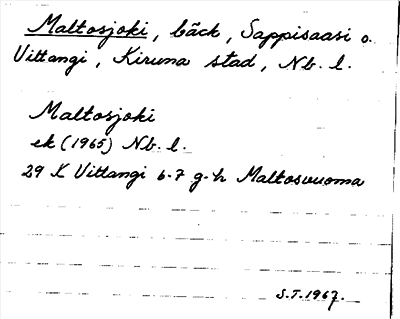 Maltosjoki, bäck, Sappisaasi o.
Vittangi, Kiruna stad, Nb. l.
Maltosjoki
ek (1965) Nb. l.
29 K Vittangi 6-7 g-h Maltosvuoma
S.T. 1967.